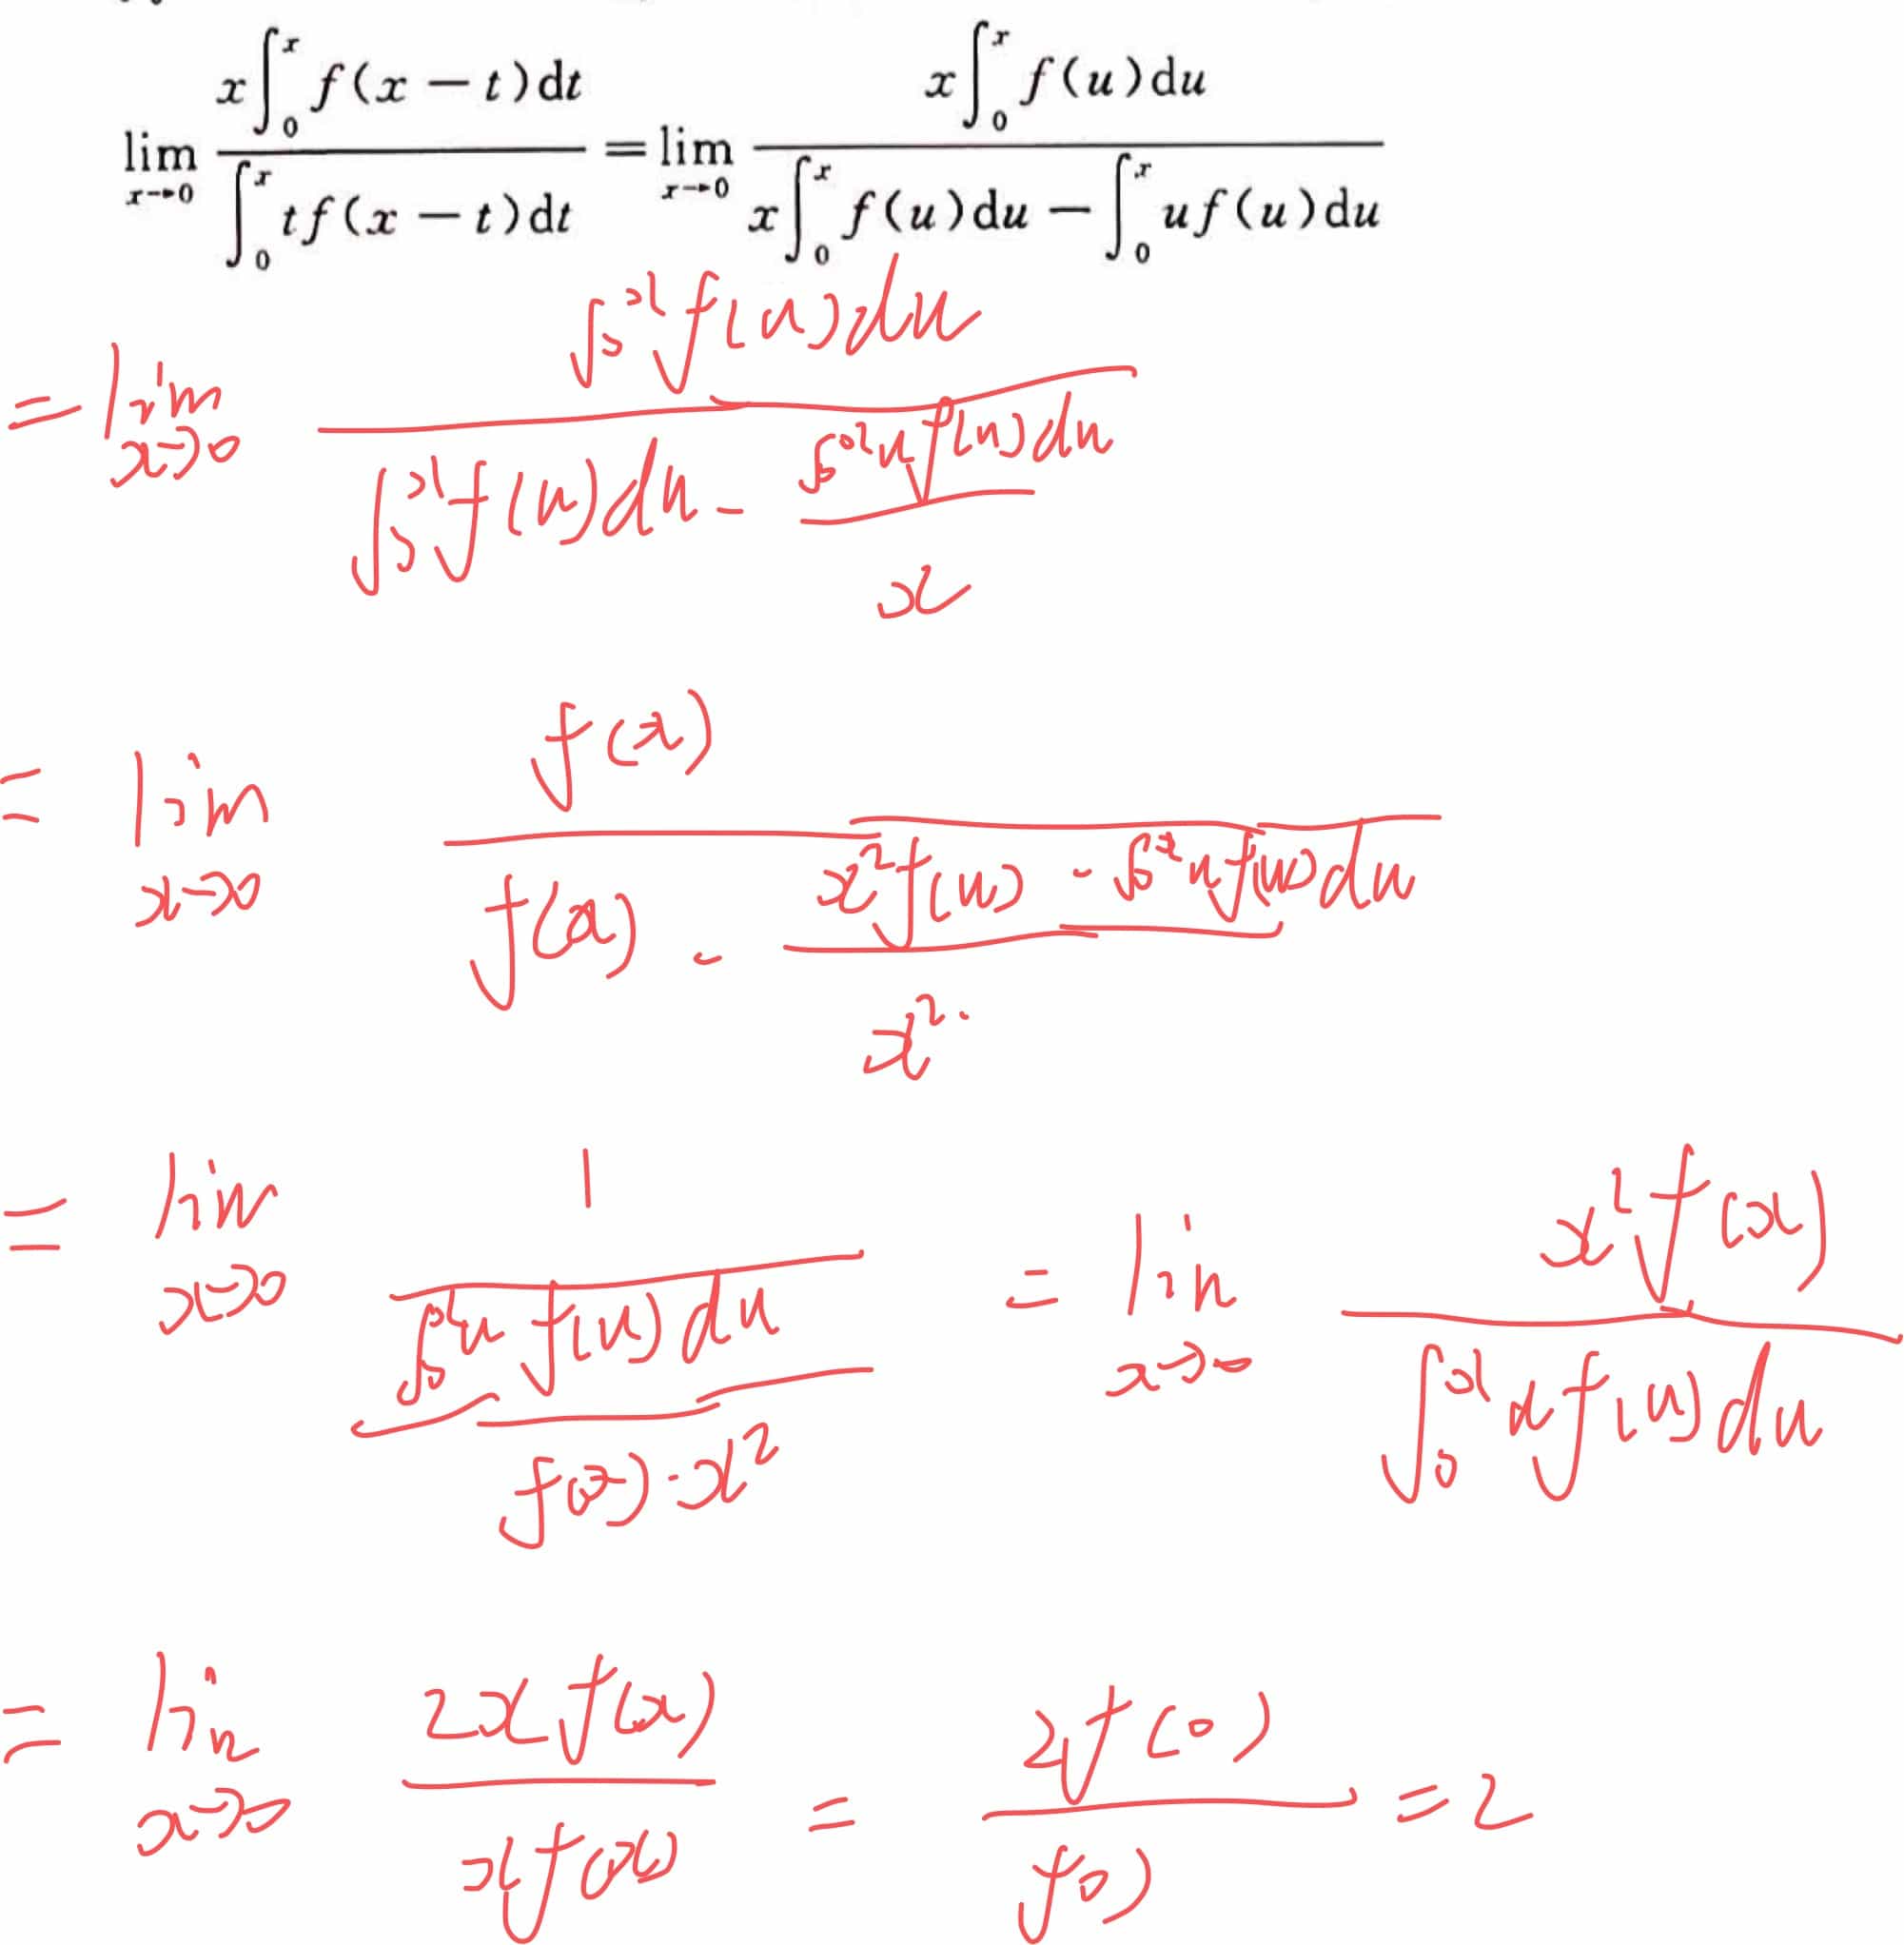 lim_{x→0} \frac{x∫_0^x f(x-t)dt}{∫_0^x tf(x-t)dt} = lim_{x→0} \frac{x∫_0^x f(u)du}{x∫_0^x f(u)du - ∫_0^x uf(u)du}
= lim_{x→0} \frac{∫_0^x f(u)du}{∫_0^x f(u)du - \frac{∫_0^x uf(u)du}{x}}
= lim_{x→0} \frac{f(x)}{f(x) - \frac{x^2f(u) - ∫_0^x uf(u)du}{x^2}}
= lim_{x→0} \frac{1}{\frac{∫_0^x uf(u)du}{f(x)·x^2}} = lim_{x→0} \frac{x^2f(x)}{∫_0^x uf(u)du}
= lim_{x→0} \frac{2xf(x)}{xf(x)} = \frac{2f(0)}{f(0)} = 2